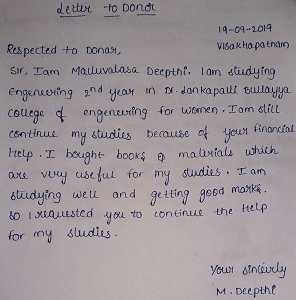 Letter to Donor
19-09-2019
Visakhapatnam
Respected to Donar,
Sir, Iam Mailuvalasa Deepthi. Iam studying
Engeneering 2nd year in Dr. Lankapalli Bullayya
College of engeneering for women. Iam still
continue my studies because of your financial
Help. I bought books & materials which
are very useful for my studies. I am
studying well and getting good marks.
so I requested you to continue the Help
for my studies.
Your sincierly
M. Deepthi